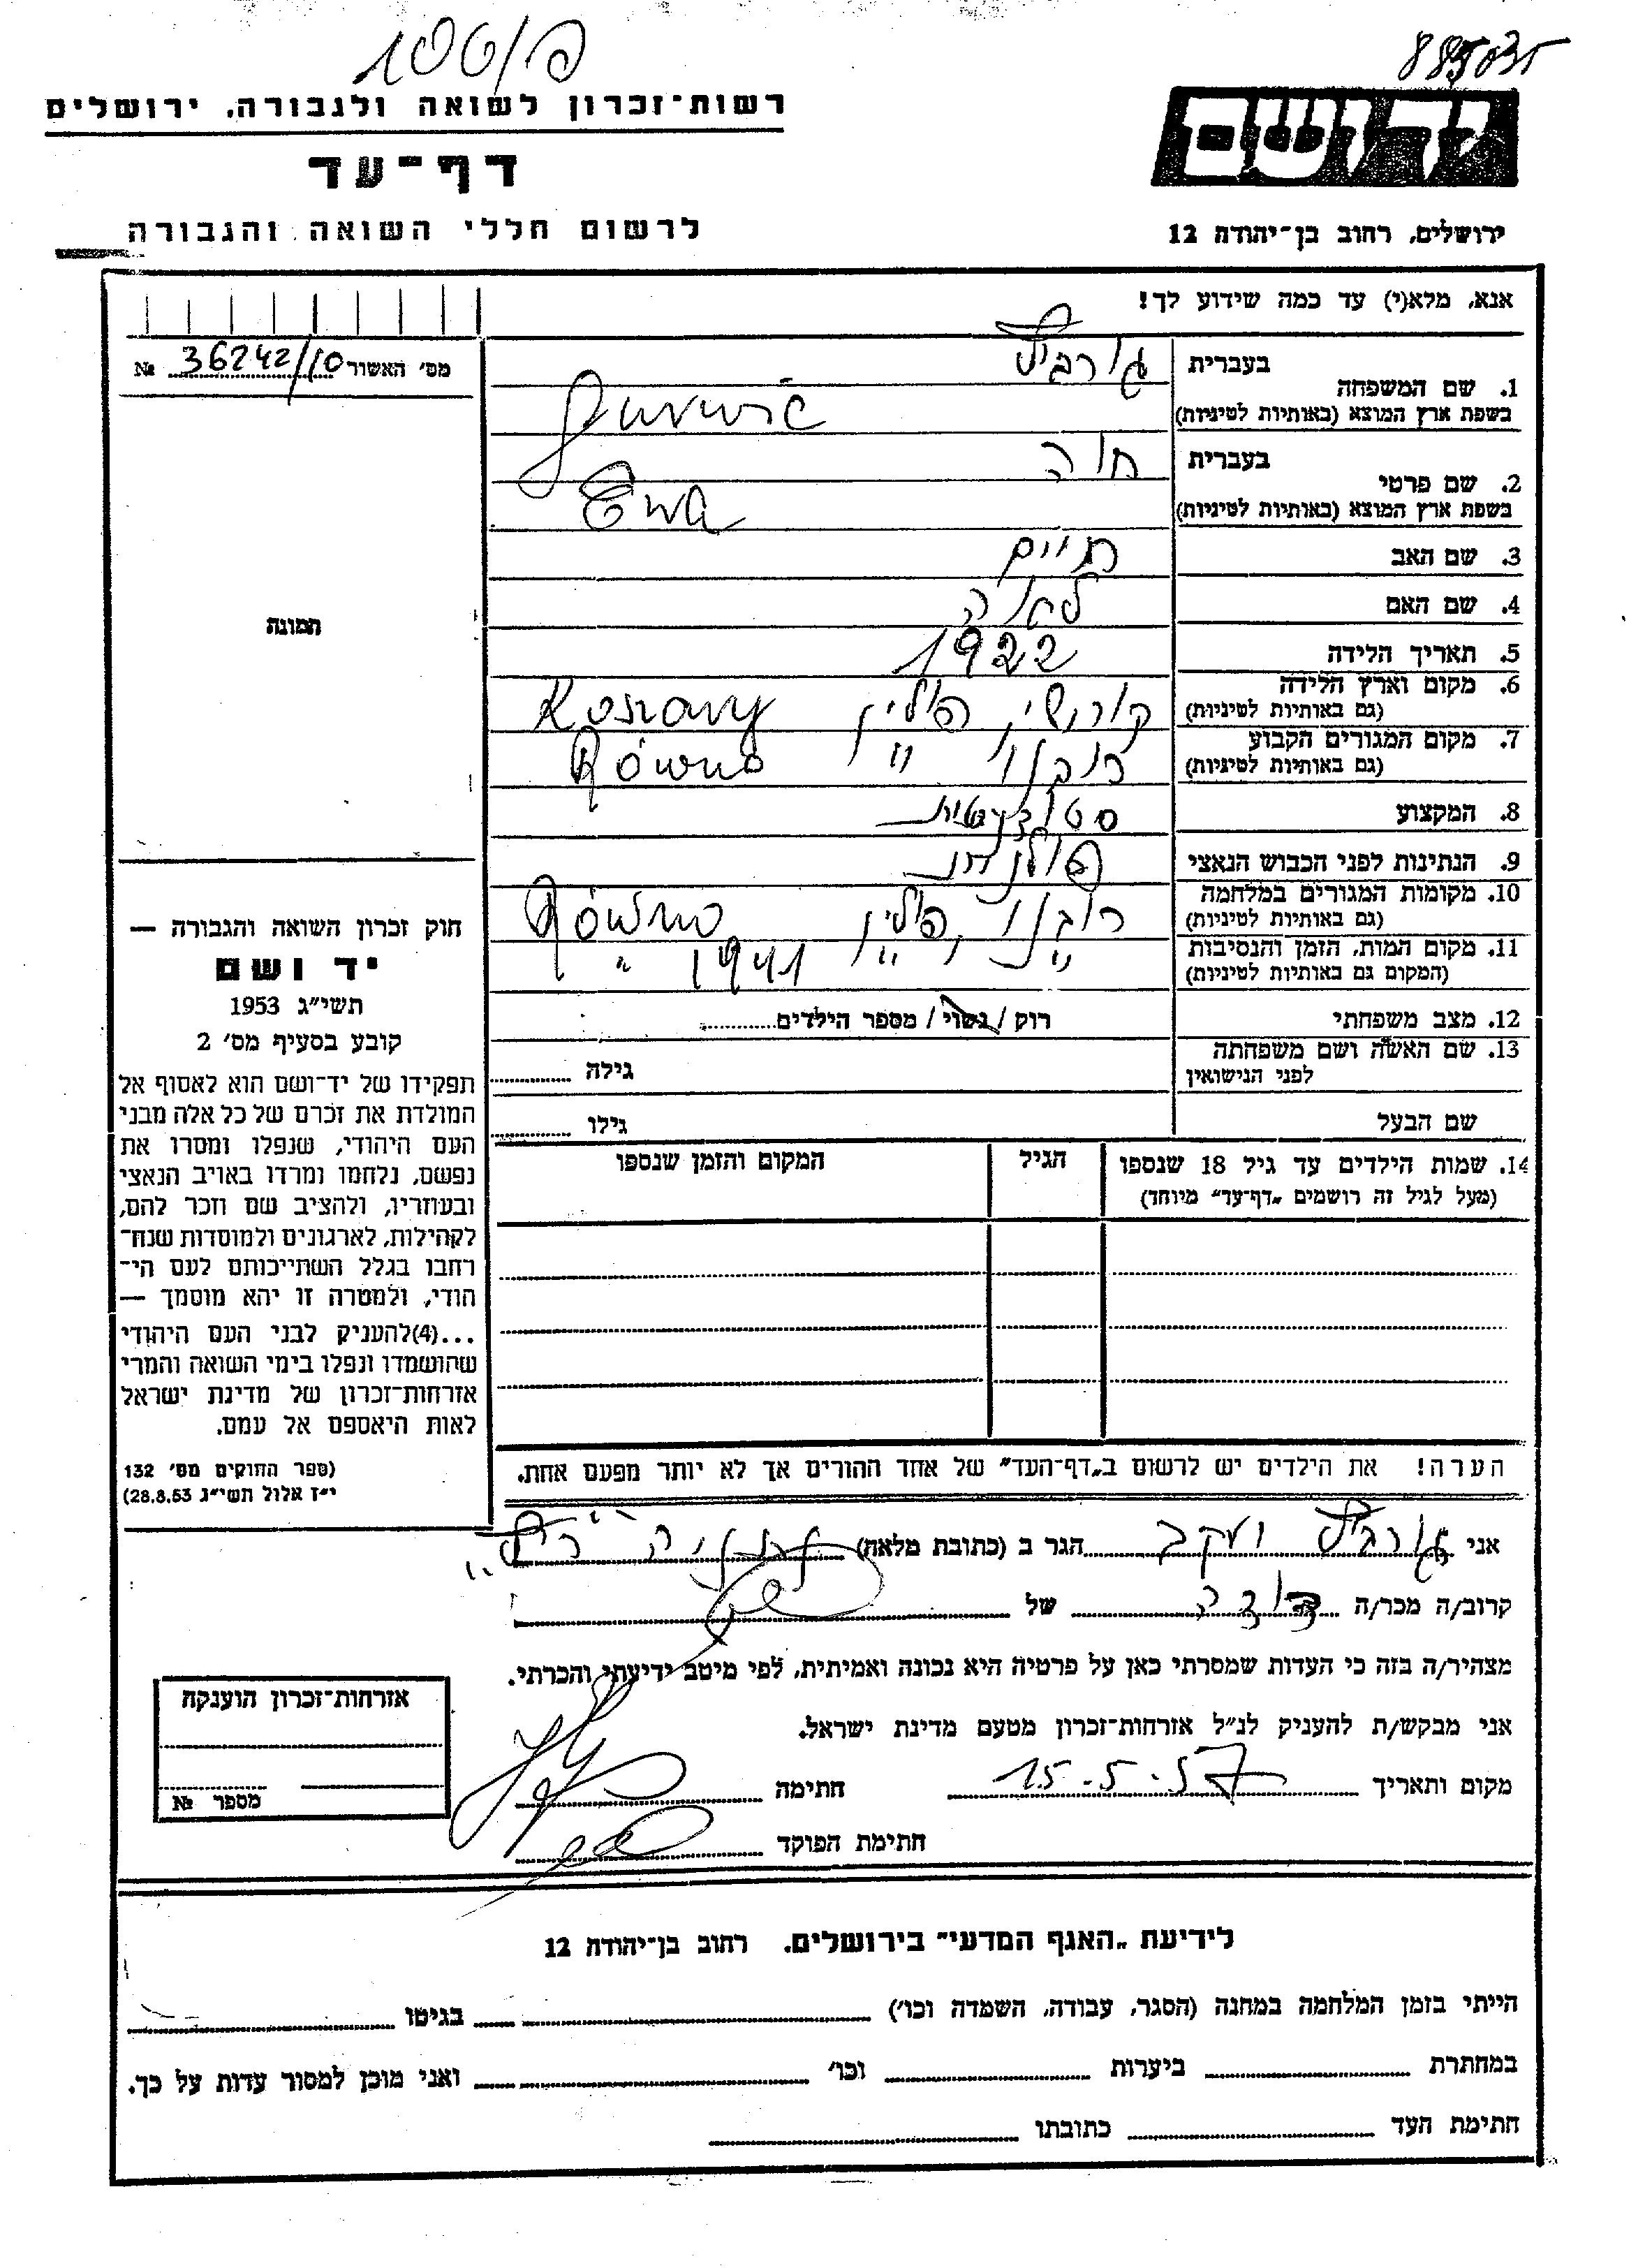 885035
רשות־זכרון לשואה ולגבורה, ירושלים
יד ושם
דף־עד
לרשום חללי השואה והגבורה
ירושלים, רחוב בן־יהודה 12
אנא, מלא(י) עד כמה שידוע לך!
מס׳ האשור 36242/10 №
בעברית
1. שם המשפחה
בשפת ארץ המוצא (באותיות לטיניות)
בעברית חוה
2. שם פרטי
בשפת ארץ המוצא (באותיות לטיניות) Ewa
3. שם האב חיים
4. שם האם לאה
5. תאריך הלידה 1922
6. מקום וארץ הלידה פולין
(גם באותיות לטיניות)
7. מקום המגורים הקבוע רובנו " Równo
(גם באותיות לטיניות)
8. המקצוע סטודנטית
9. הנתינות לפני הכבוש הנאצי פולנית
10. מקומות המגורים במלחמה רובנו פולין Równo
(גם באותיות לטיניות)
11. מקום המות, הזמן והנסיבות " " 1941 "
(המקום גם באותיות לטיניות)
12. מצב משפחתי רוק / נשוי / מספר הילדים
13. שם האשה ושם משפחתה
לפני הנישואין גילה
שם הבעל גילו
14. שמות הילדים עד גיל 18 שנספו הגיל המקום והזמן שנספו
(מעל לגיל זה רושמים „דף־עד" מיוחד)
הערה! את הילדים יש לרשום ב„דף־העד" של אחד ההורים אך לא יותר מפעם אחת.
תמונה
חוק זכרון השואה והגבורה —
יד ושם
תשי״ג 1953
קובע בסעיף מס׳ 2
תפקידו של יד־ושם הוא לאסוף אל
המולדת את זכרם של כל אלה מבני
העם היהודי, שנפלו ומסרו את
נפשם, נלחמו ומרדו באויב הנאצי
ובעוזריו, ולהציב שם וזכר להם,
לקהילות, לארגונים ולמוסדות שנח־
רבו בגלל השתייכותם לעם הי־
הודי, ולמטרה זו יהא מוסמך —
...(4)להעניק לבני העם היהודי
שהושמדו ונפלו בימי השואה והמרי
אזרחות־זכרון של מדינת ישראל
לאות היאספם אל עמם.
(ספר החוקים מס׳ 132
י״ז אלול תשי״ג 28.8.53)
אני יעקב הגר ב (כתובת מלאה)
קרוב/ה מכר/ה דודה של
מצהיר/ה בזה כי העדות שמסרתי כאן על פרטיה היא נכונה ואמיתית, לפי מיטב ידיעתי והכרתי.
אני מבקש/ת להעניק לנ״ל אזרחות־זכרון מטעם מדינת ישראל.
מקום ותאריך 15.5.57 חתימה
חתימת הפוקד
אזרחות־זכרון הוענקה
מספר №
לידיעת „האגף המדעי" בירושלים, רחוב בן־יהודה 12
הייתי בזמן המלחמה במחנה (הסגר, עבודה, השמדה וכו׳) בגיטו
במחתרת ביערות וכו׳ ואני מוכן למסור עדות על כך.
חתימת העד כתובתו